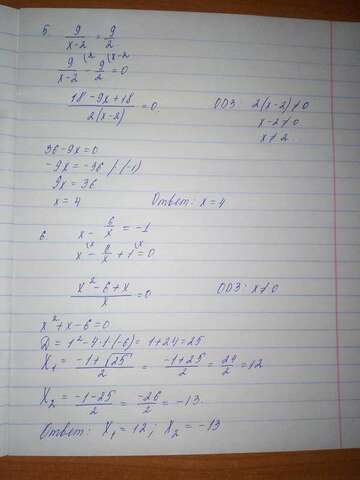 5. 9/(x-2) = 9/2
9/(x-2) (2 - 9/2 (x-2 = 0
(18 - 9x + 18)/(2(x-2)) = 0 ОДЗ: 2(x-2)≠0
x-2≠0
x≠2
36-9x=0
-9x=-36 /·(-1)
9x=36
x=4 Ответ: x=4
6. x - 6/x = -1
x (x - 6/x + 1 (x = 0
(x² - 6 + x)/x = 0 ОДЗ: x≠0
x²+x-6=0
D = 1²-4·1·(-6) = 1+24=25
X₁ = (-1+√25)/2 = (-1+25)/2 = 24/2 = 12
X₂ = (-1-25)/2 = -26/2 = -13.
Ответ: X₁ = 12; X₂ = -13